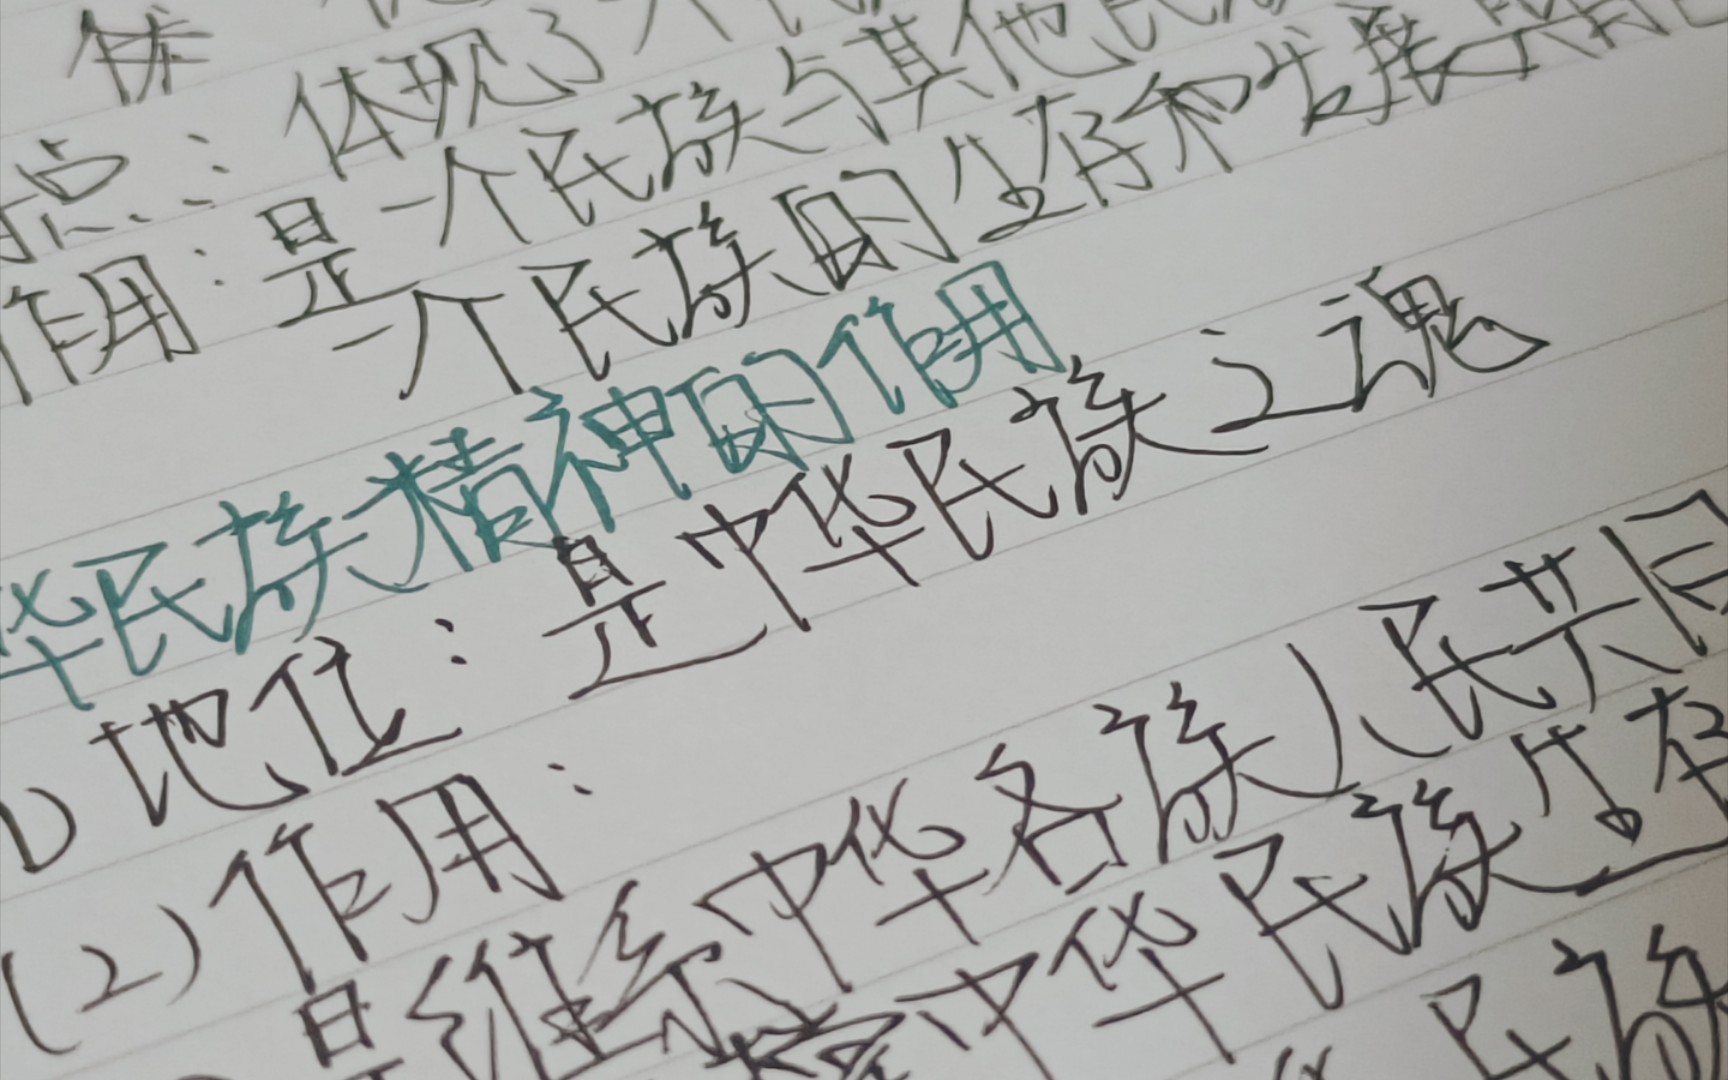 体现了
点：是一个民族与其他民
作用：一个民族的生存和发展
华民族精神的作用
1) 地位：是中华民族之魂
(2) 作用：
是维系中华各族人民共同
中华民族生存
民族